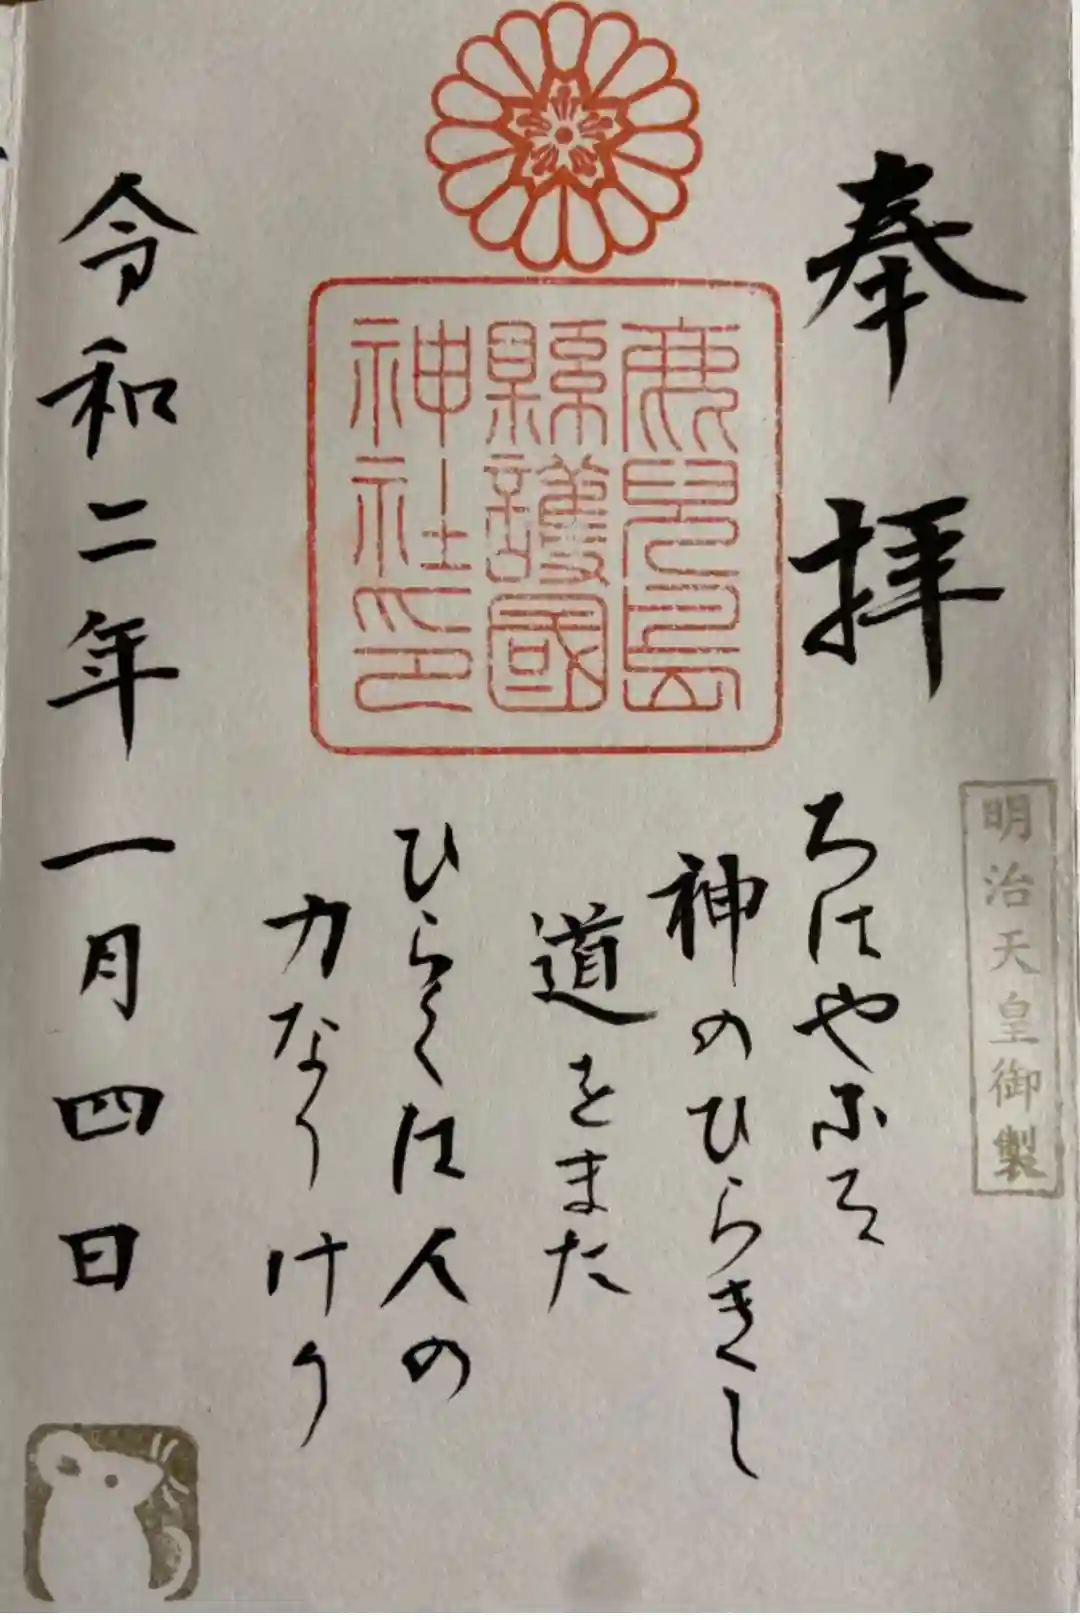 奉拝
明治天皇御製
ちはやふる
神のひらきし
道をまた
ひらくは人の
力なりけり
鹿兒島
縣護國
神社印
令和二年一月四日